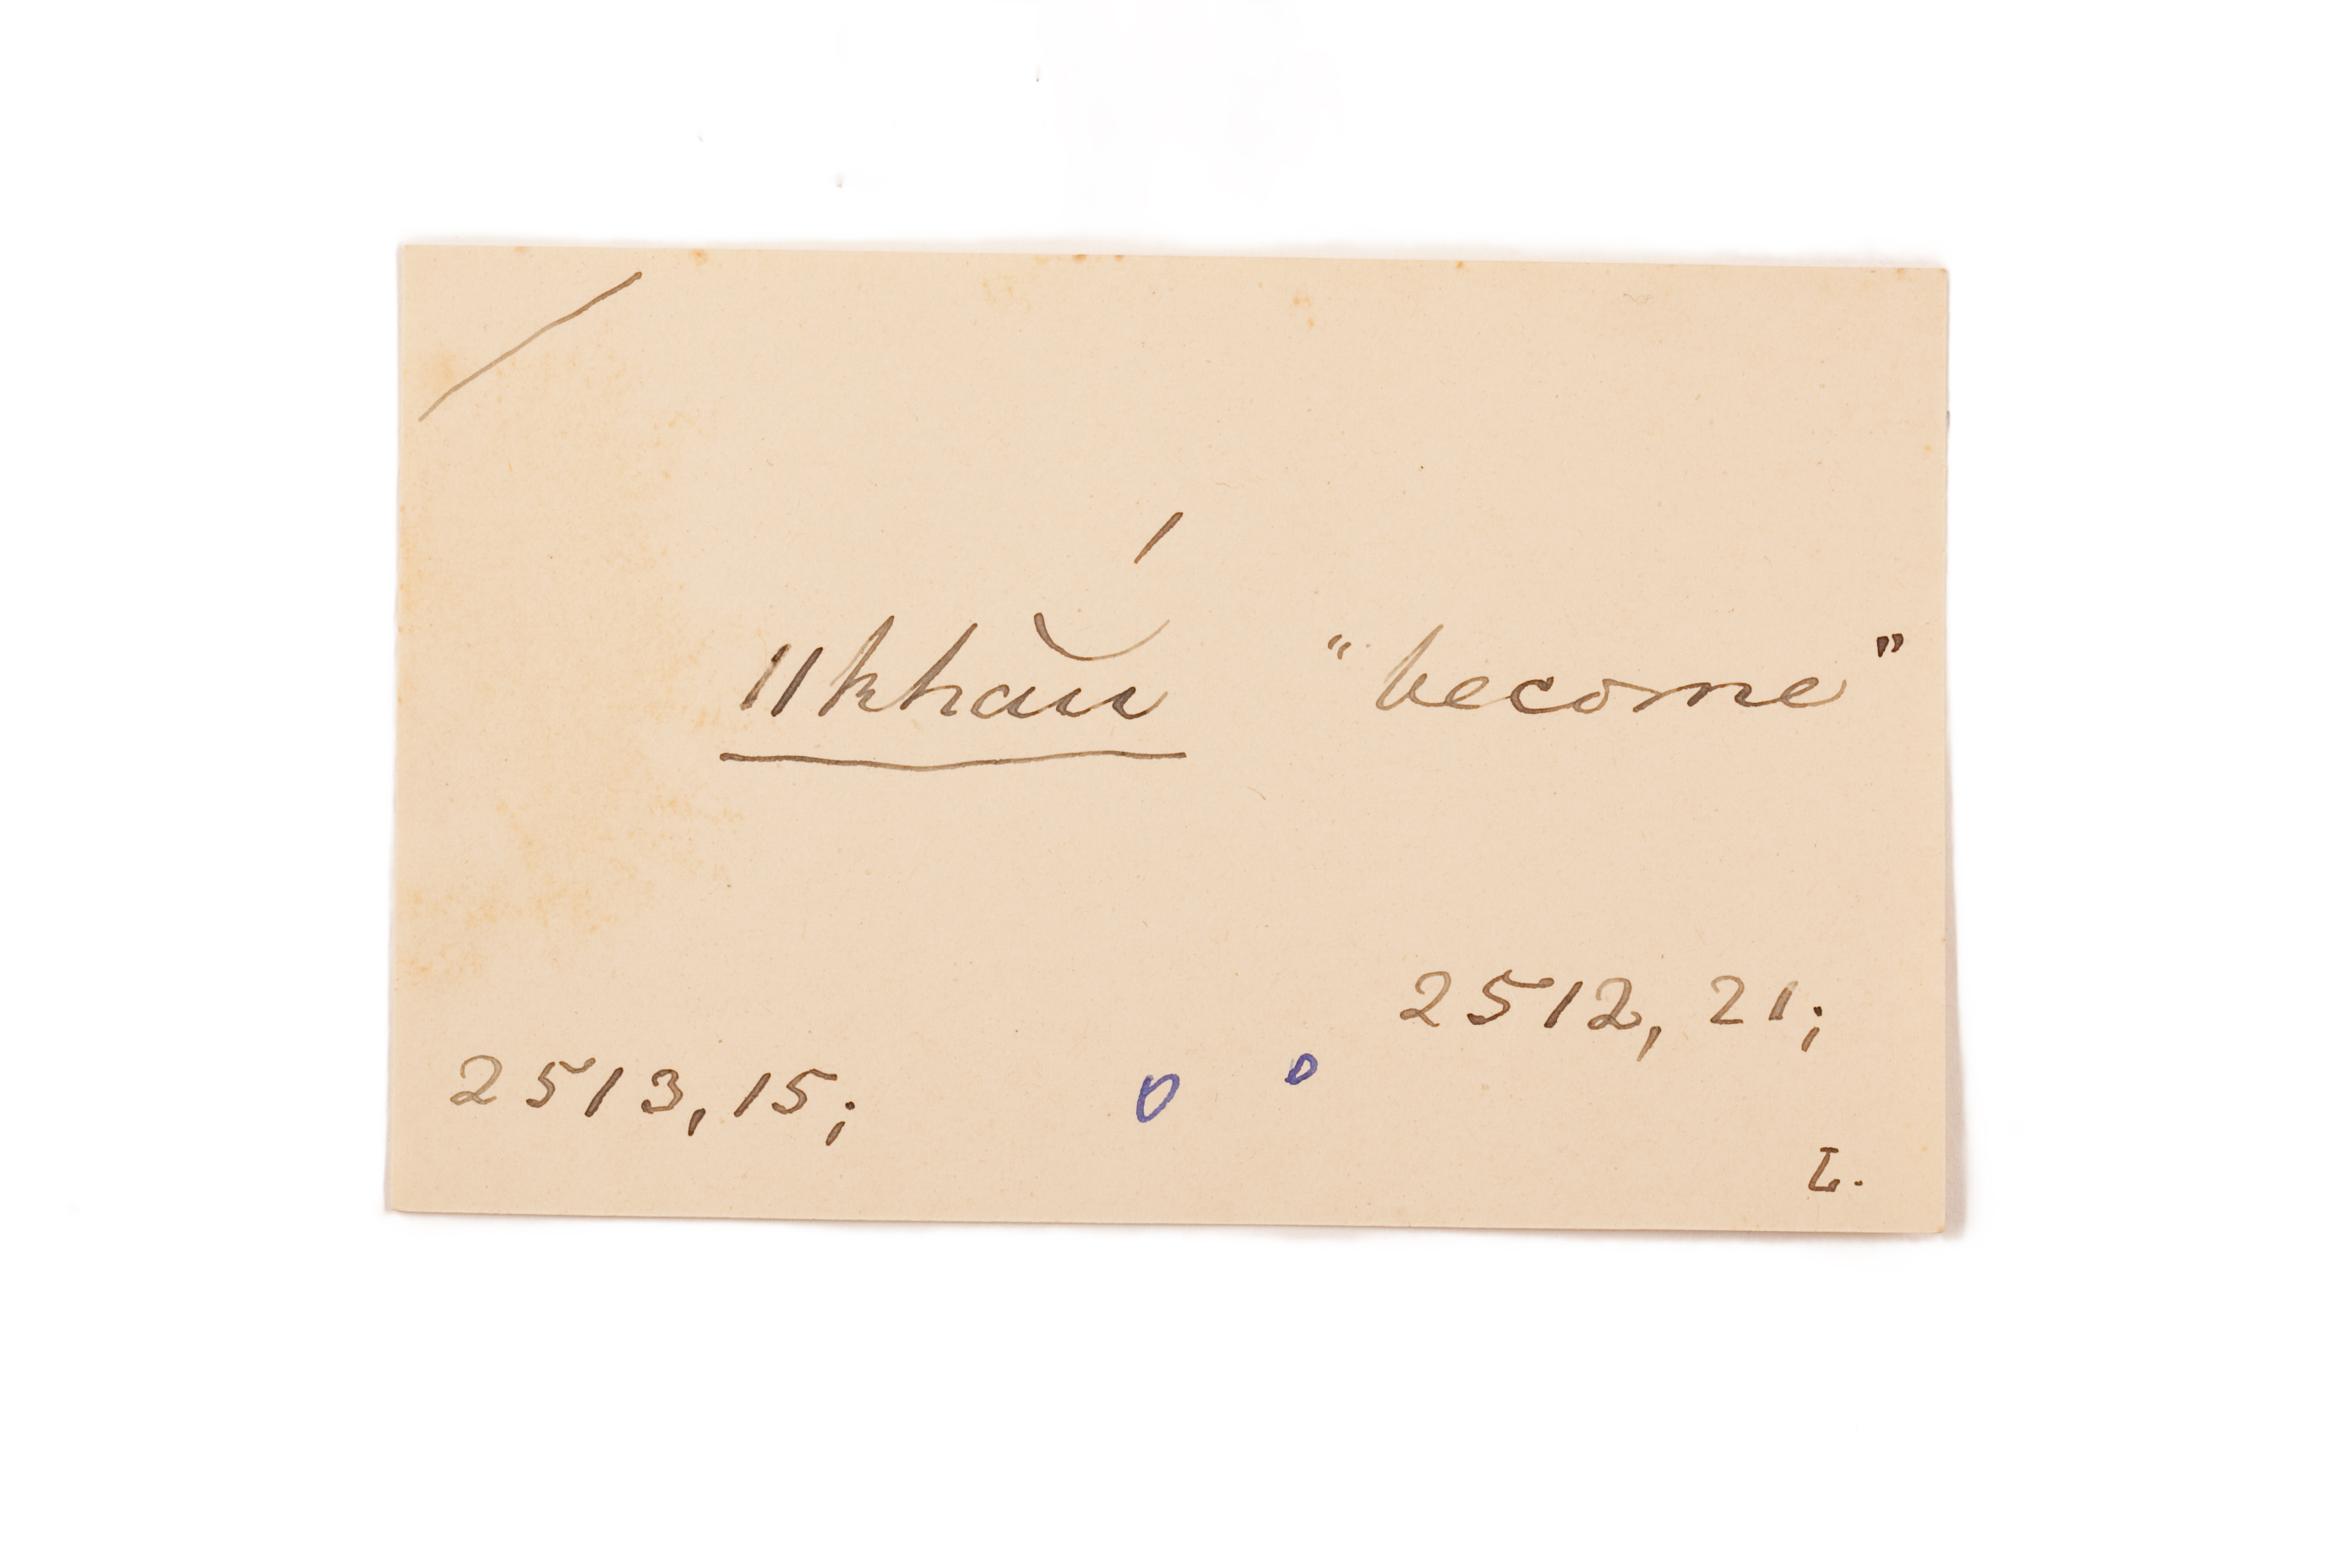 ǁkhăú̯ "become"
2512, 21;
2513, 15;
L.